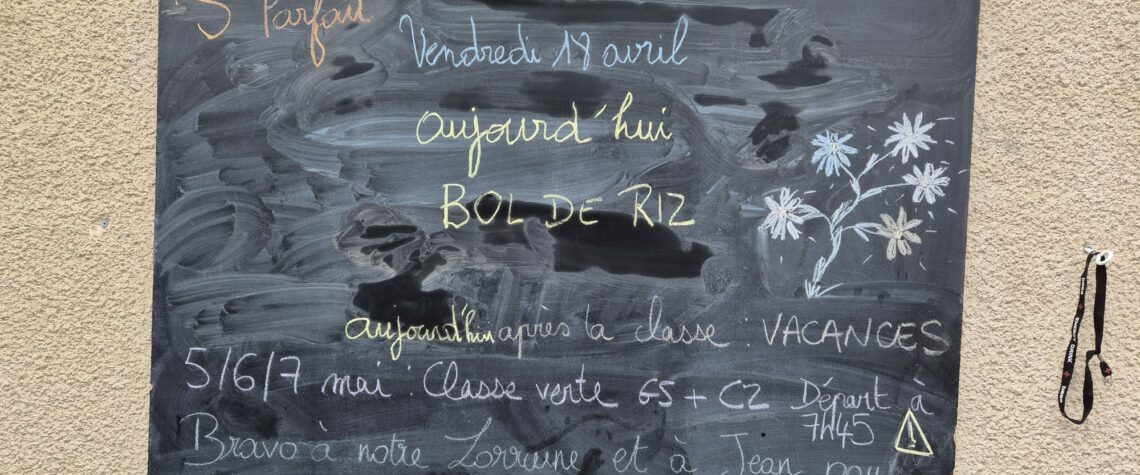 S Parfait
Vendredi 18 avril
aujourd'hui
BOL DE RIZ
aujourd'hui après la classe : VACANCES
5/6/7 mai : Classe verte GS + C2 Départ à
7h45 !
Bravo à notre Lorraine et à Jean pou